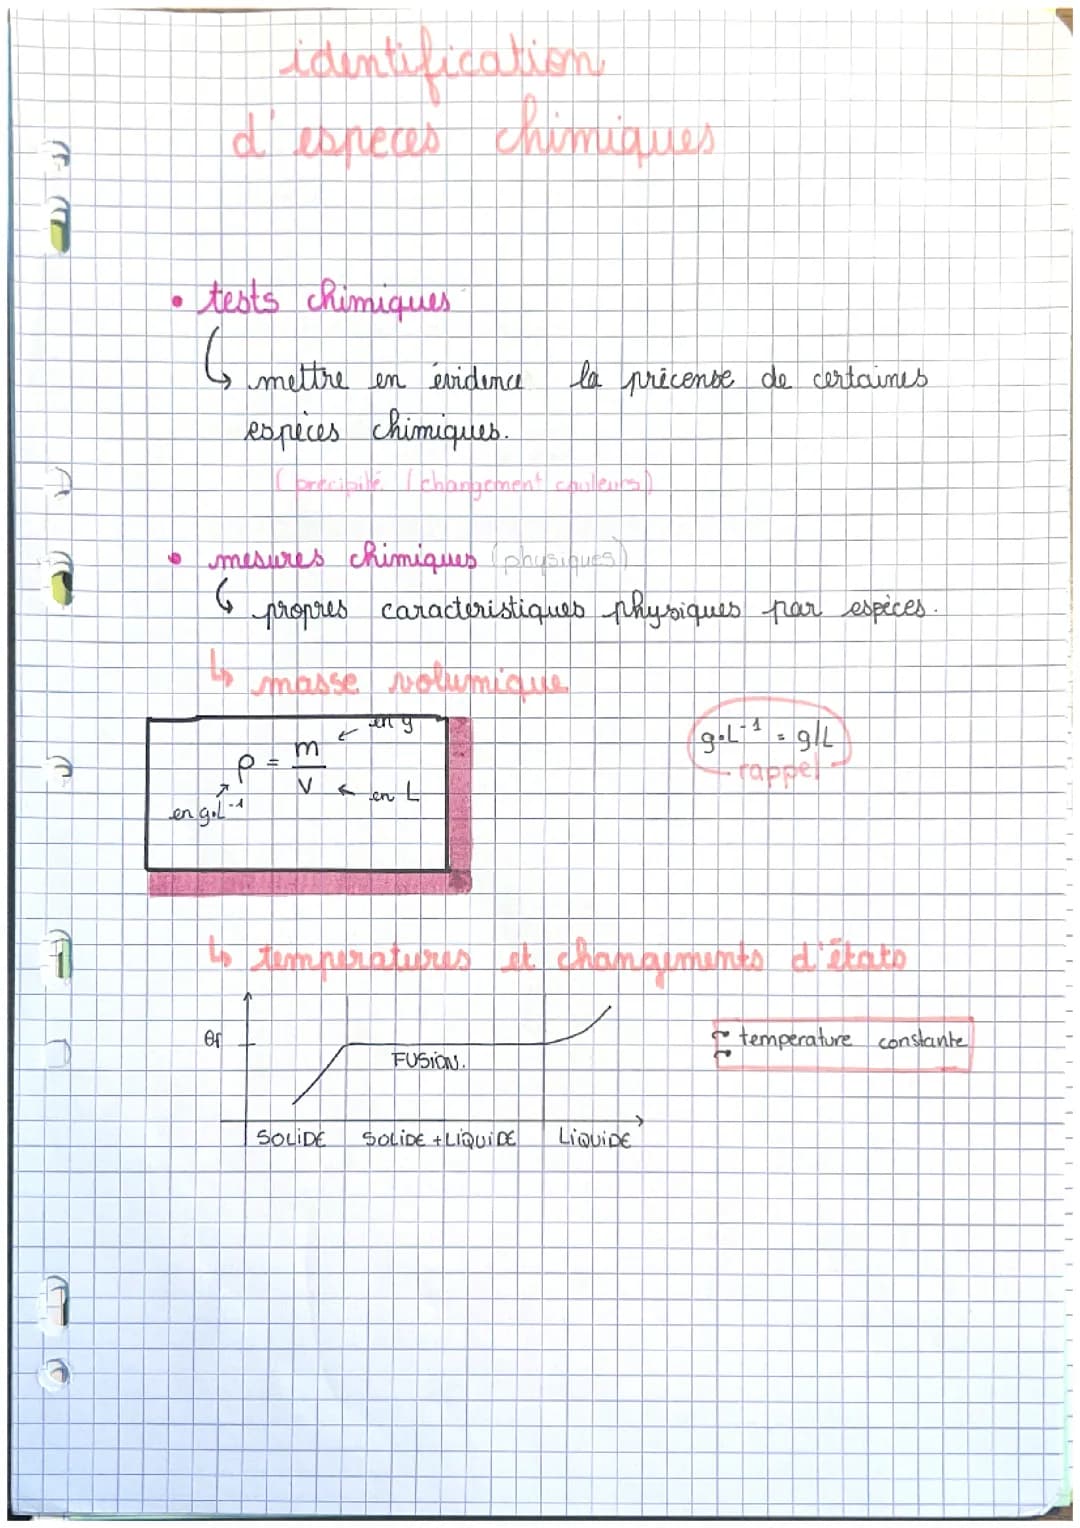 identification
d'especes chimiques
• tests chimiques
↳ mettre en évidence la précense de certaines
espèces chimiques.
(précipité / changement couleurs)
• mesures chimiques (physiques)
↳ propres caracteristiques physiques par espèces.
↳ masse volumique
ρ = m / V
en g
en L
en g.L⁻¹
g.L⁻¹ = g/L
rappel
↳ temperatures et changements d'états
θf
FUSION.
temperature constante
SOLIDE SOLIDE + LIQUIDE LIQUIDE